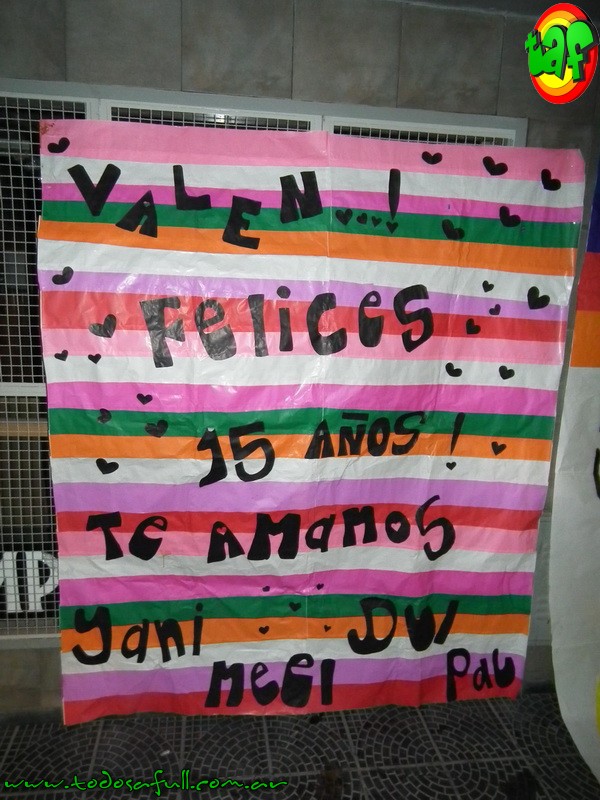 taf
VALEN...!
Felices
15 AÑOS!
Te AMaMOS
Yani Dul
Meli Pau
MP
www.todosafull.com.ar